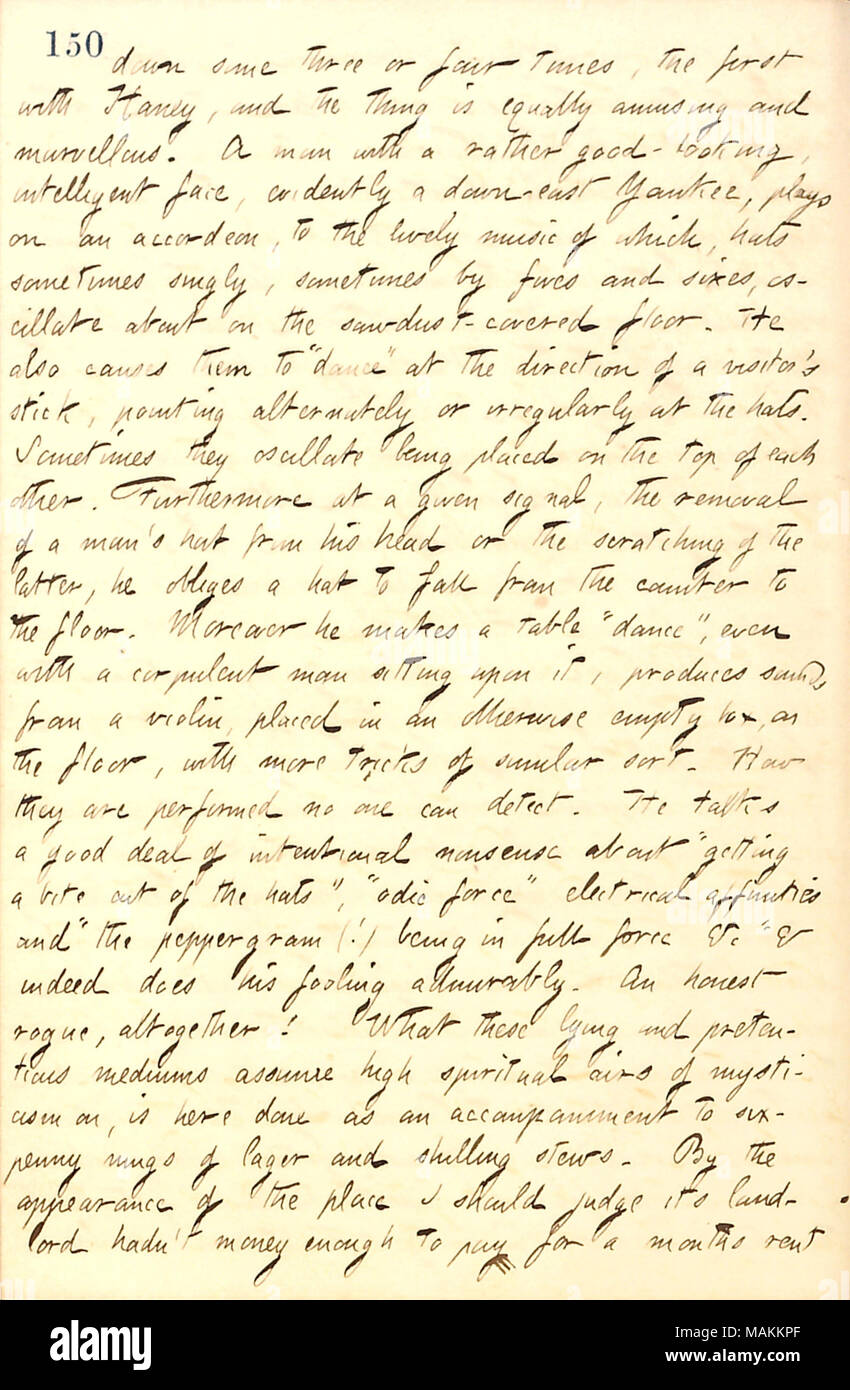 150
down some three or four times, the first
with Haney, and the thing is equally amusing and
marvellous. A man with a rather good-looking,
intelligent face, evidently a down-east Yankee, plays
on an accordeon, to the lively music of which, hats
sometimes singly, sometimes by fives and sixes, os-
cillate about on the sawdust-covered floor. He
also causes them to "dance" at the direction of a visitor's
stick, pointing alternately or irregularly at the hats.
Sometimes they oscillate being placed on the top of each
other. Furthermore at a given signal, the removal
of a man's hat from his head or the scratching of the
latter, he obliges a hat to fall from the counter to
the floor. Moreover he makes a table "dance", even
with a corpulent man sitting upon it, produces sounds
from a violin, placed in an otherwise empty box, on
the floor, with more tricks of similar sort. How
they are performed no one can detect. He talks
a good deal of intentional nonsense about "getting
a bite out of the hats", "odic force" electrical affinities
and "the peppergram (!) being in full force &c" &
indeed does his fooling admirably. An honest
rogue, altogether! What these lying and preten-
tious mediums assume high spiritual airs of mysti-
cism on, is here done as an accompaniment to six-
penny mugs of lager and shilling stews. By the
appearance of the place I should judge its land-
lord hadn't money enough to pay for a months rent
alamy
Image ID: MAKKPF
www.alamy.com